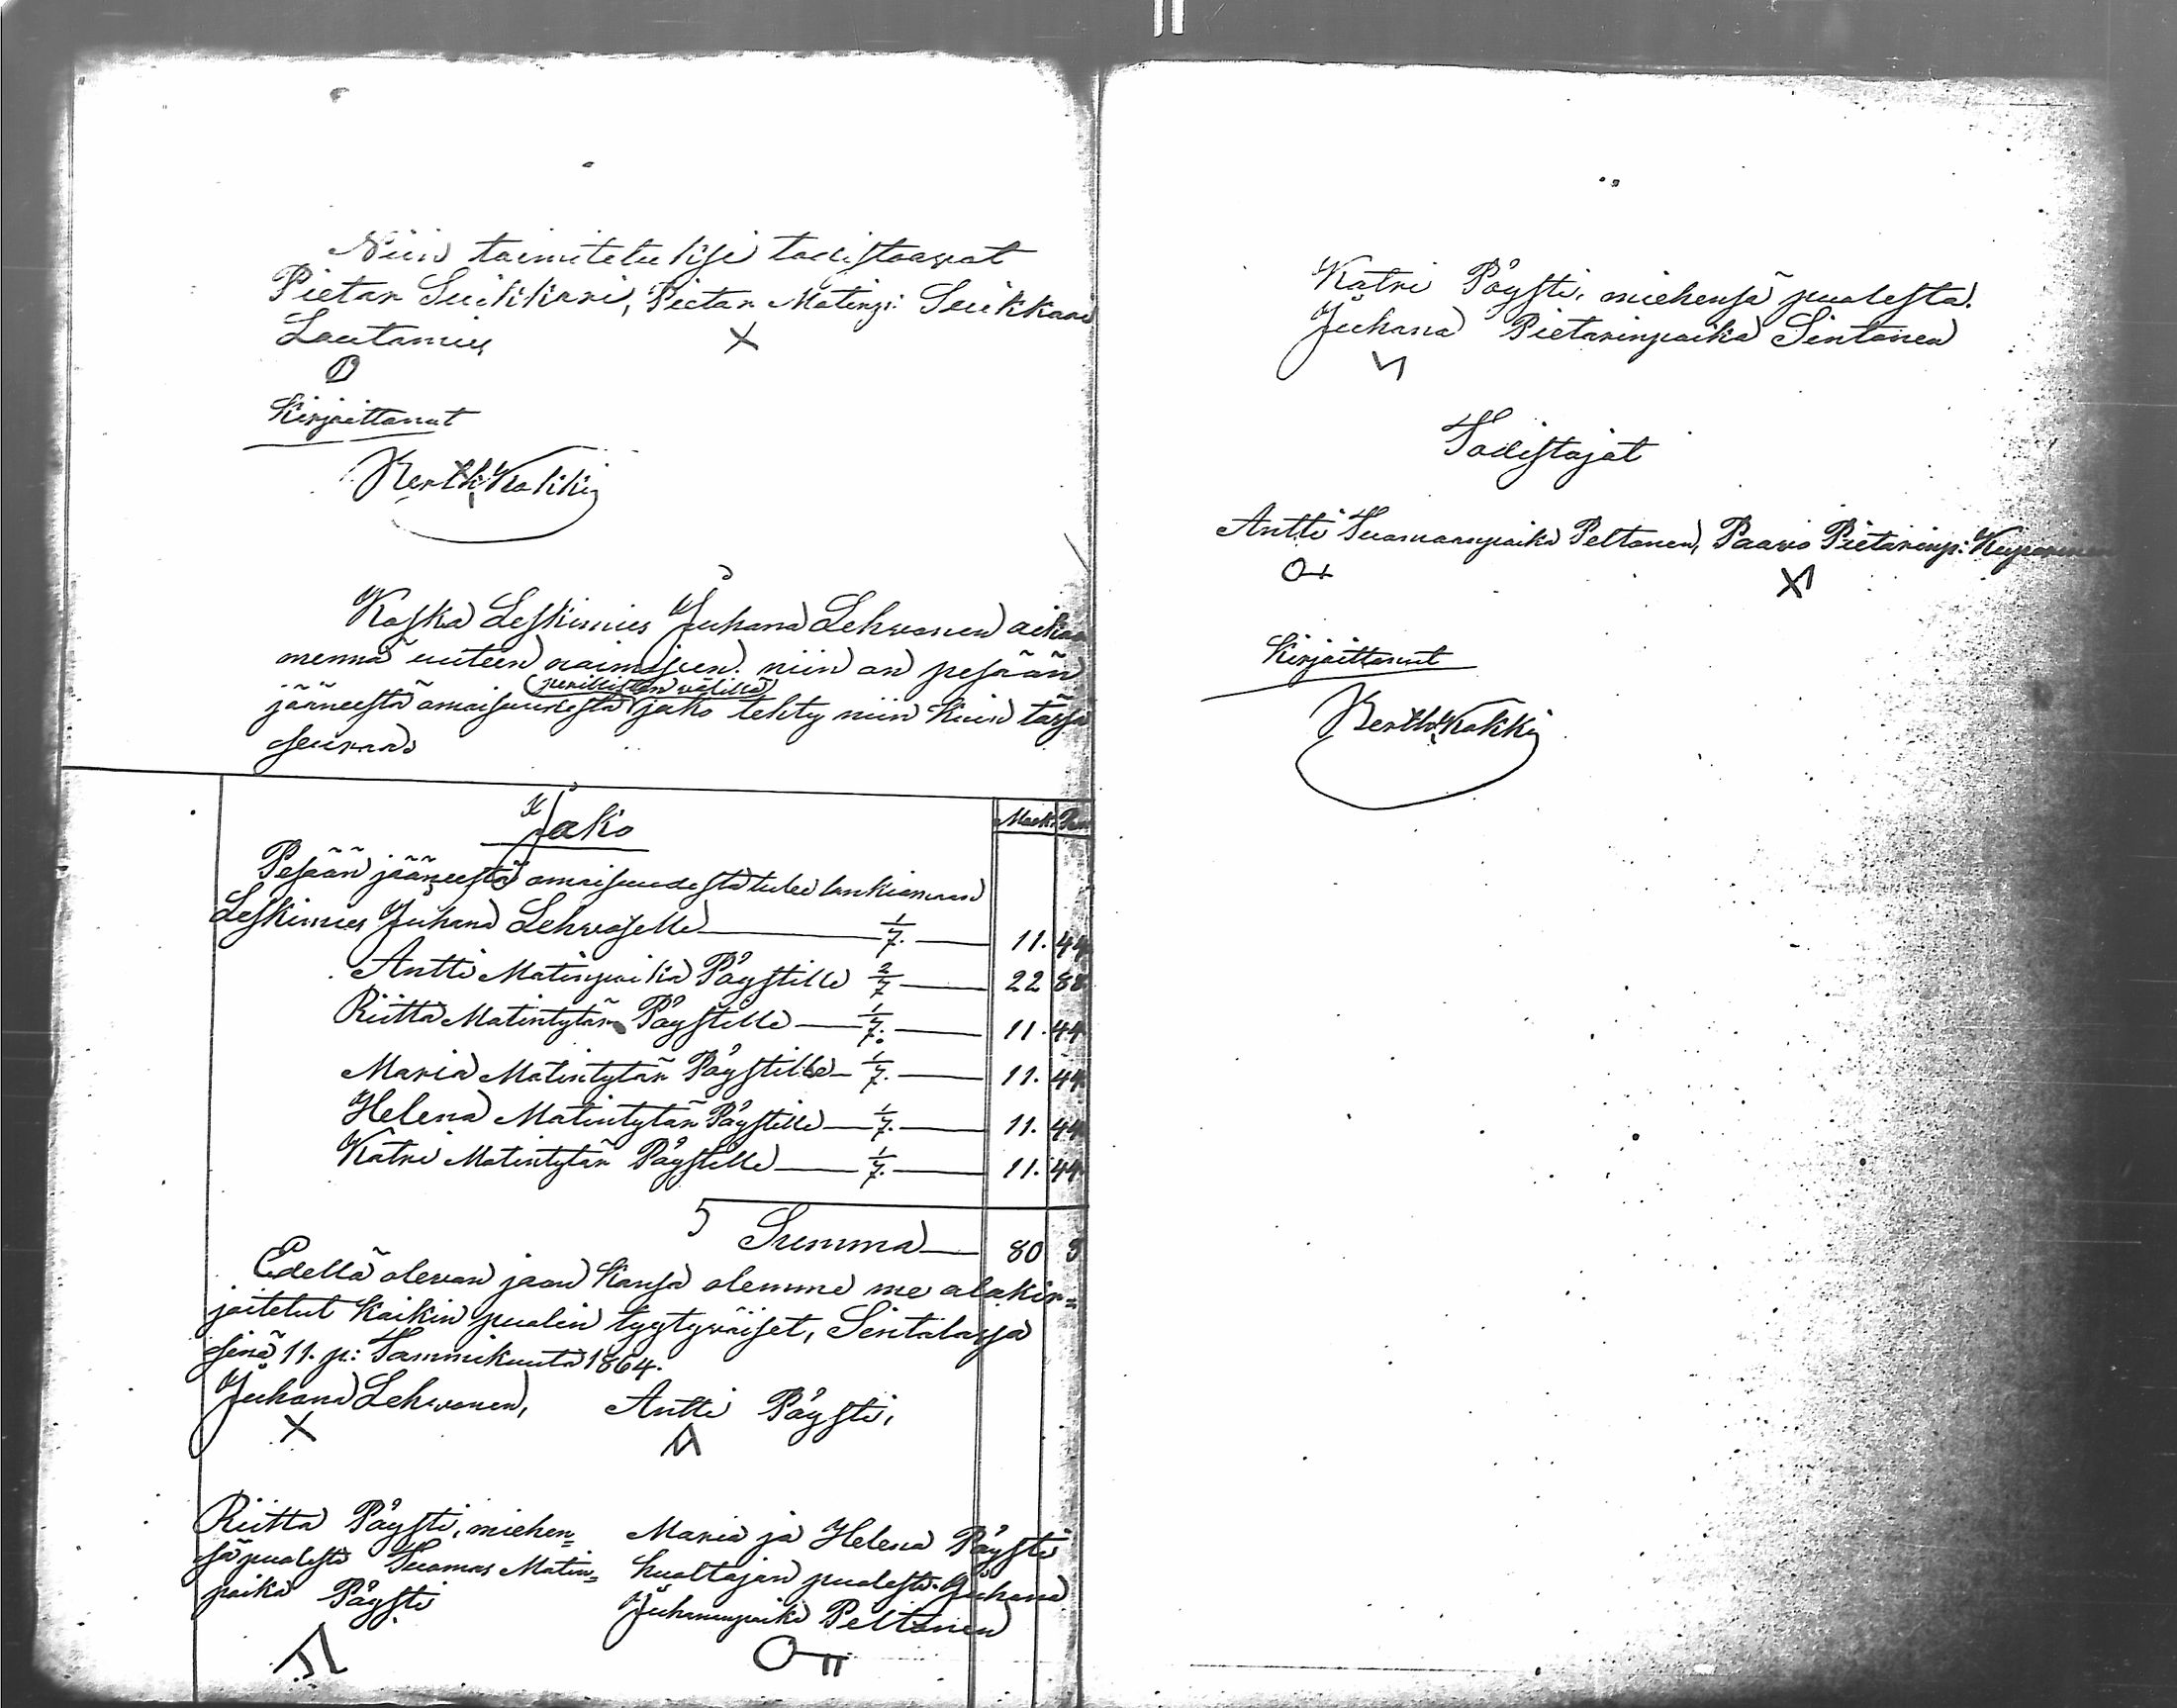 Niin toimitetuksi todistaavat
Pietar Suikkari, Pietar Matinp: Suikkari
Lautamies
Kirjoittanut
Berth: Kokki
Koska Leskimies Juhana Lehvonen aikoo
mennä uuteen naimisen. niin on pesään
perillisten välillä
jääneestä omaisuudesta jako tehty niin kuin tässä
seuraa.
Jako
Mark. Pen
Pesään jääneestä omaisuudesta tulee lankiamaan
Leskimies Juhana Lehvoselle 1/7. 11. 44
Antti Matinpoika Påystille 2/7 22 88
Riitta Matintytär Påystille 1/7. 11. 44
Maria Matintytär Påystille 1/7. 11. 44
Helena Matintytär Påystille 1/7. 11. 44
Katri Matintytär Påystille 1/7. 11. 44
Summa 80 8
Edellä olevan jaon kansa olemme me alakir=
joitetut kaikin puolin tyytyväiset, Sintalassa
sinä 11. p: Tammikuuta 1864.
Juhana Lehvonen, Antti Påysti,
Riitta Påysti, miehen= Maria ja Helena Påysti
sä puolesta Tuomas Matin= huoltajan puolesta Juhana
poika Påysti Juhananpoika Peltonen
Katri Påysti, miehensä puolesta.
Juhana Pietarinpoika Sintonen
Todistajat
Antti Tuomaanpoika Peltonen, Paavo Pietarinp: Kuparinen
Kirjoittanut
Berth: Kokki